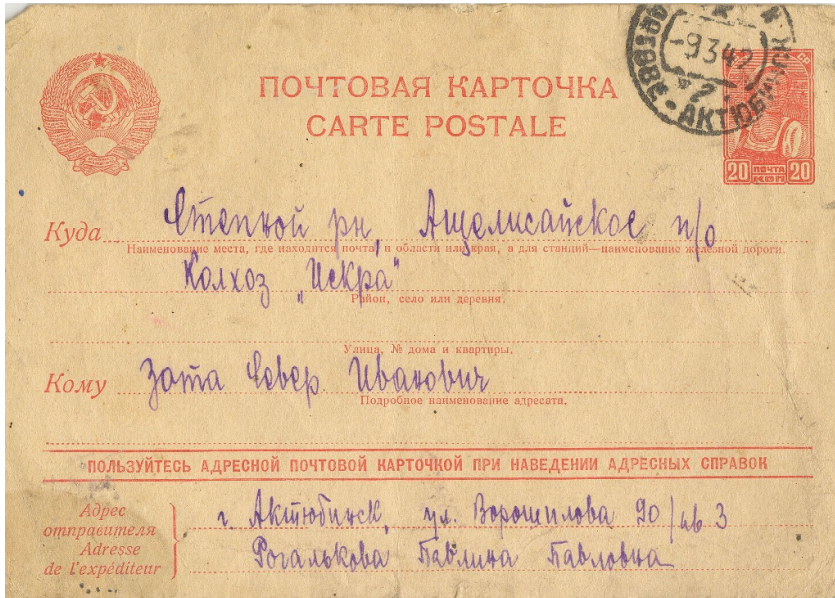 ПОЧТОВАЯ КАРТОЧКА
CARTE POSTALE
-9 3 42
АКТЮБИНСК
20 ПОЧТА 20
Куда Степной рн, Ащелисайское п/о
Наименование места, где находится почта, и области или края, а для станций—наименование железной дороги.
Колхоз „Искра"
Район, село или деревня.
Улица, № дома и квартиры.
Кому Зота Север Иванович
Подробное наименование адресата.
ПОЛЬЗУЙТЕСЬ АДРЕСНОЙ ПОЧТОВОЙ КАРТОЧКОЙ ПРИ НАВЕДЕНИИ АДРЕСНЫХ СПРАВОК
Адрес
отправителя
Adresse
de l'expéditeur
г. Актюбинск, ул. Ворошилова 90/кв 3
Рогалькова Павлина Павловна